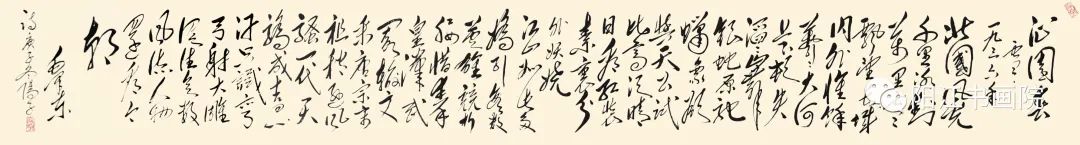 沁園春
雪 一九三六年
北國風光
千里冰封
萬里雪
飄望長城
內外惟餘
莽莽大河
上下頓失
滔滔山舞
銀蛇原馳
蠟象欲
與天公試
比高須晴
日看紅裝
素裹分
外妖嬈
江山如此多
嬌引無數
英雄競折
腰惜秦
皇漢武
略輸文
采唐宗宋
祖稍遜風
騷一代天
驕成吉思
汗只識彎
弓射大雕
俱往矣數
風流人物
還看今
朝
毛澤東
詩庚子冬
山书画院